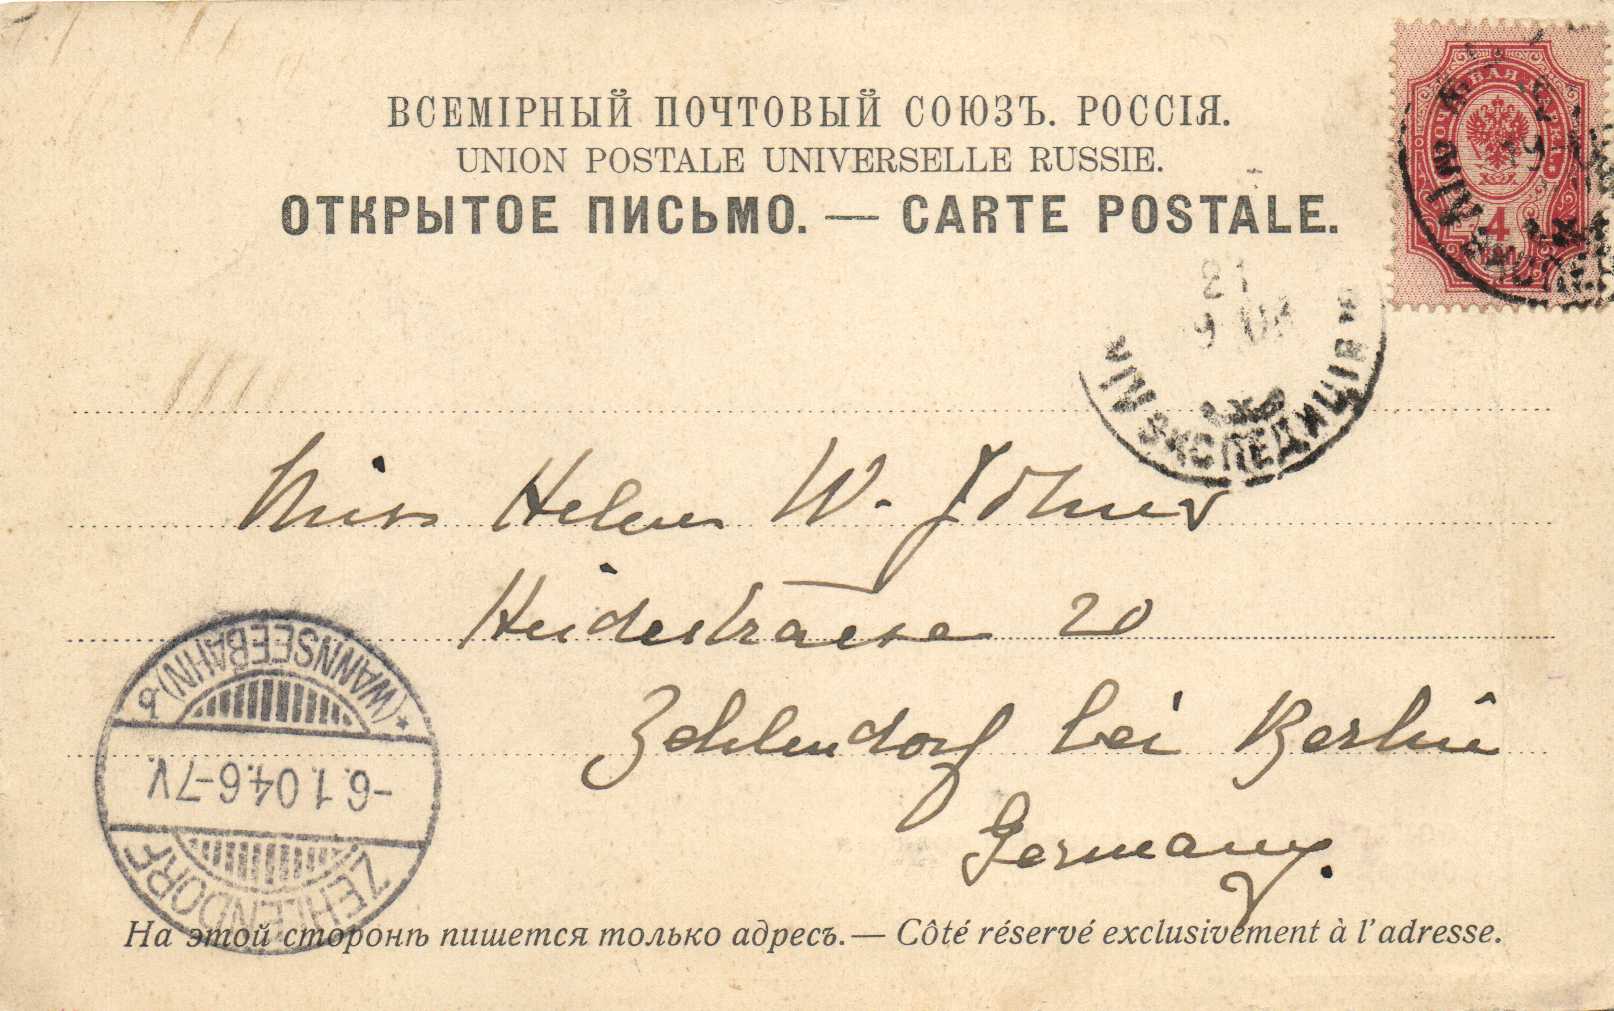 ВСЕМІРНЫЙ ПОЧТОВЫЙ СОЮЗЪ. РОССІЯ.
UNION POSTALE UNIVERSELLE RUSSIE.
ОТКРЫТОЕ ПИСЬМО. — CARTE POSTALE.
ПОЧТОВАЯ МАРКА
4
21
ЭКСПЕДИЦІЯ
Miss Helen W.
Heidestrasse 20
Zehlendorf bei Berlin
Germany.
ZEHLENDORF
-6.1.04.6-7V.
*(WANNSEEBAHN). b
На этой сторонѣ пишется только адресъ. — Côté réservé exclusivement à l'adresse.